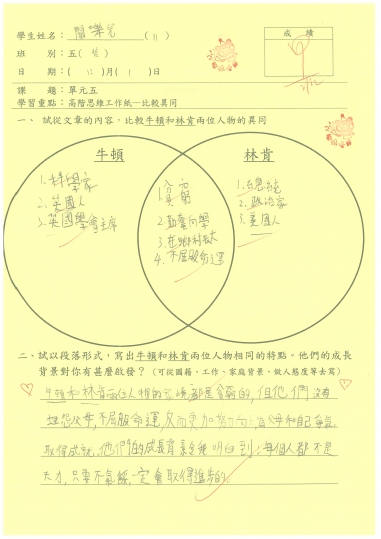 學生姓名：
班　　別：五（　）
日　　期：（12）月（1）日
成　績
課　　題：單元五
學習重點：高階思維工作紙—比較異同
一、 試從文章的內容，比較牛頓和林肯兩位人物的異同
牛頓
1. 科學家
2. 英國人
3. 英國學會主席
1. 貧窮
2. 勤奮向學
3. 在鄉村長大
4. 不屈服命運
林肯
2. 政治家
3. 美國人
二、試以段落形式，寫出牛頓和林肯兩位人物相同的特點。他們的成長
背景對你有甚麼啟發？（可從國籍、工作、家庭背景、做人態度等去寫）
牛頓和林肯兩位人物的　　都是貧窮的，但他們沒有
埋怨父母，不屈服命運，　而更加努力向　　和自己爭氣
取得成就，他們的成長背景令我明白到：每個人都不是
天才，只要不氣餒，一定會取得進步的。